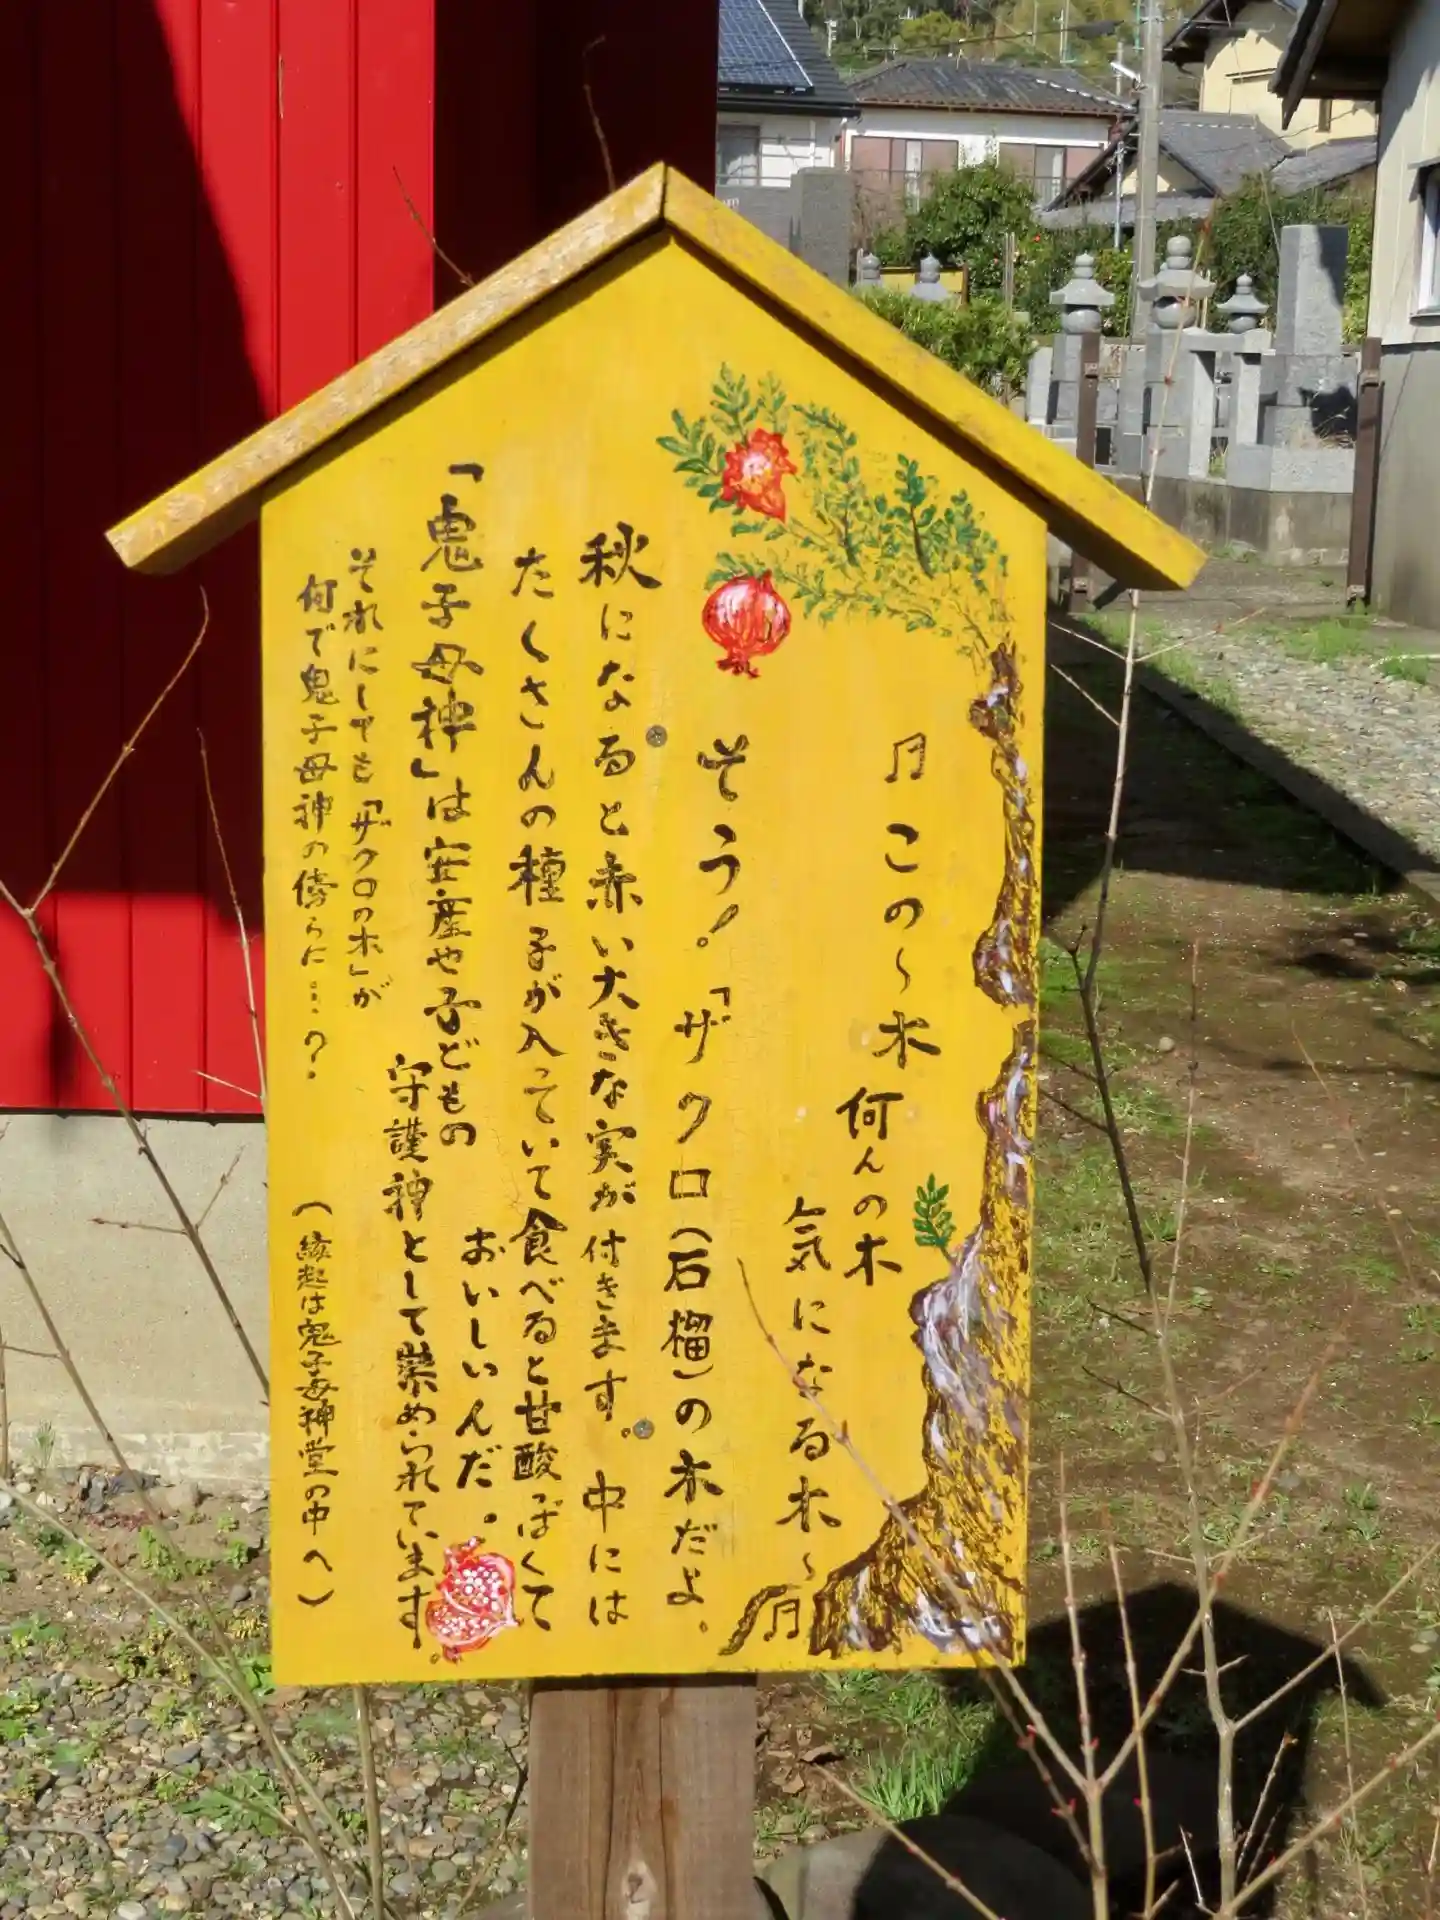 ♫この～木
何んの木
気になる木～♫
そう!「ザクロ(石榴)の木だよ。
秋になると赤い大きな実が付きます。中には
たくさんの種子が入っていて食べると甘酸ぱくて
おいしいんだ。
「鬼子母神」は安産や子どもの
守護神として崇められています。
それにしても「ザクロの木」が
何で鬼子母神の傍らに…?
(縁起は鬼子母神堂の中へ)